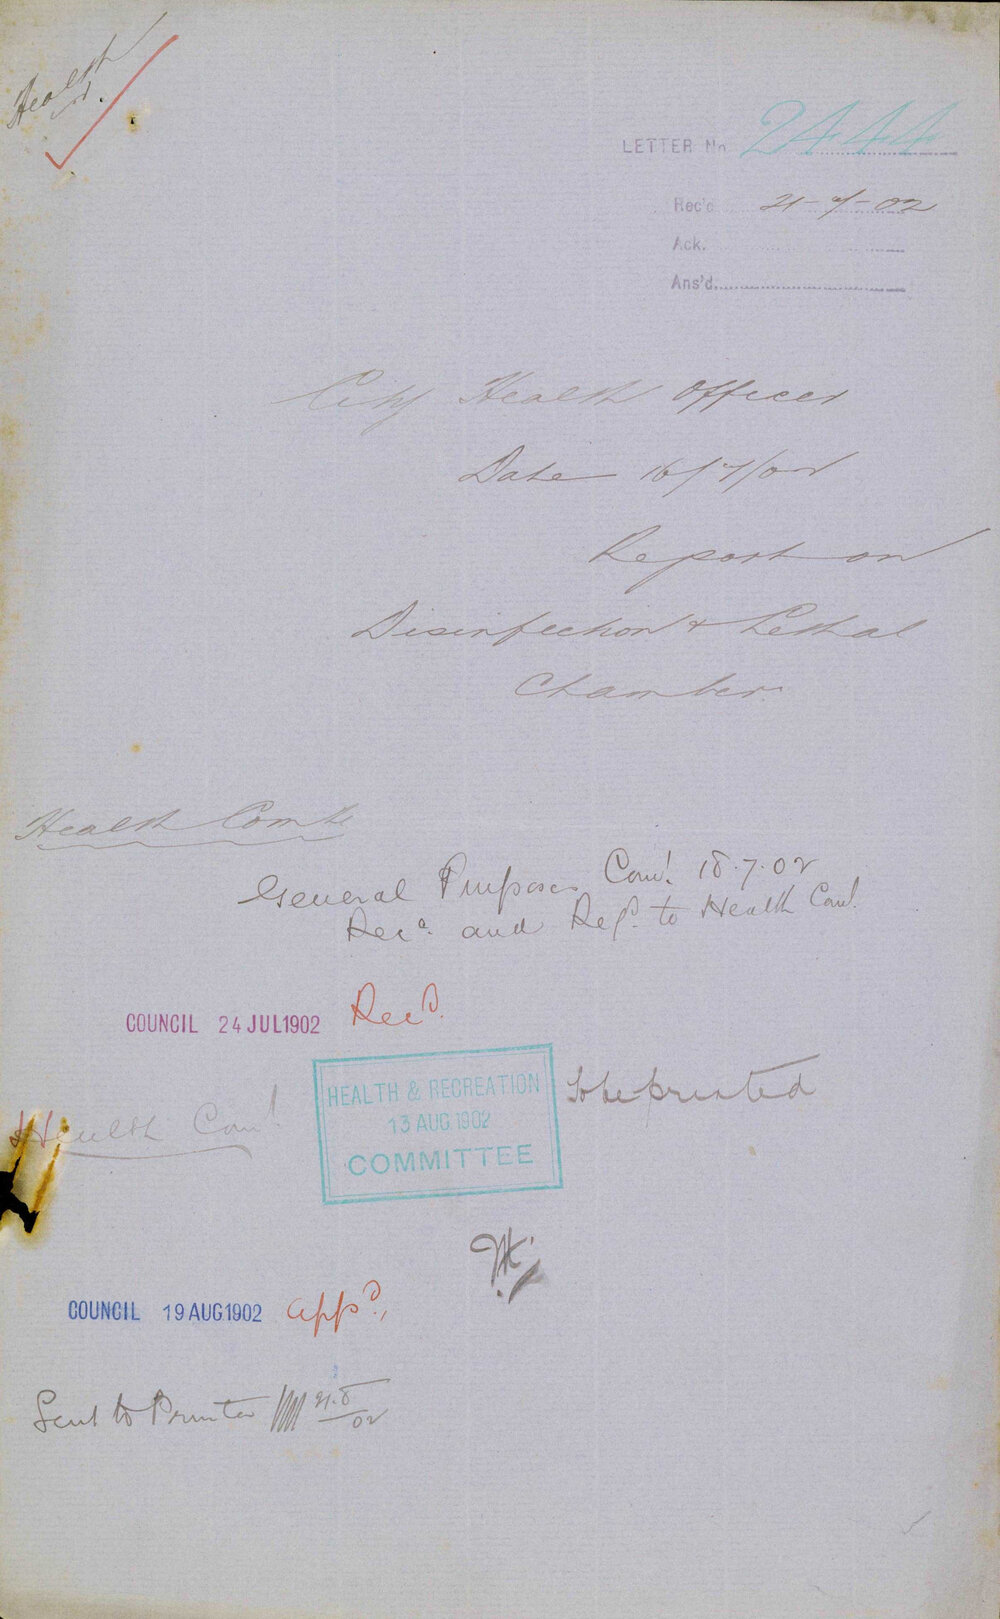 Health
LETTER No 2444
Rec'd 21-7-02
Ack.
Ans'd.
City Health Officer
Date 16/7/02
Report on
Disinfection & Lethal
Chamber.
Health Comte
General Purposes Com! 18.7.02
Recd. and Refd. to Health Com!.
COUNCIL 24 JUL 1902 Recd.
HEALTH & RECREATION
13 AUG. 1902
COMMITTEE
To be printed
Health Com!
COUNCIL 19 AUG. 1902 appd.,
Sent to Printer 21.8/02